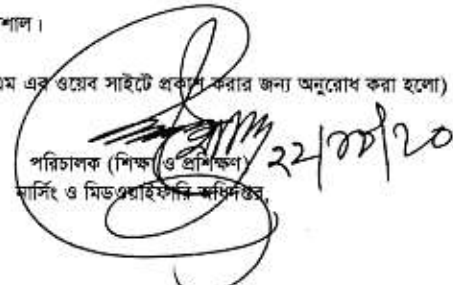 শাল।
এম এর ওয়েব সাইটে প্রকাশ করার জন্য অনুরোধ করা হলো)
পরিচালক (শিক্ষা ও প্রশিক্ষণ)
নার্সিং ও মিডওয়াইফারি অধিদপ্তর,